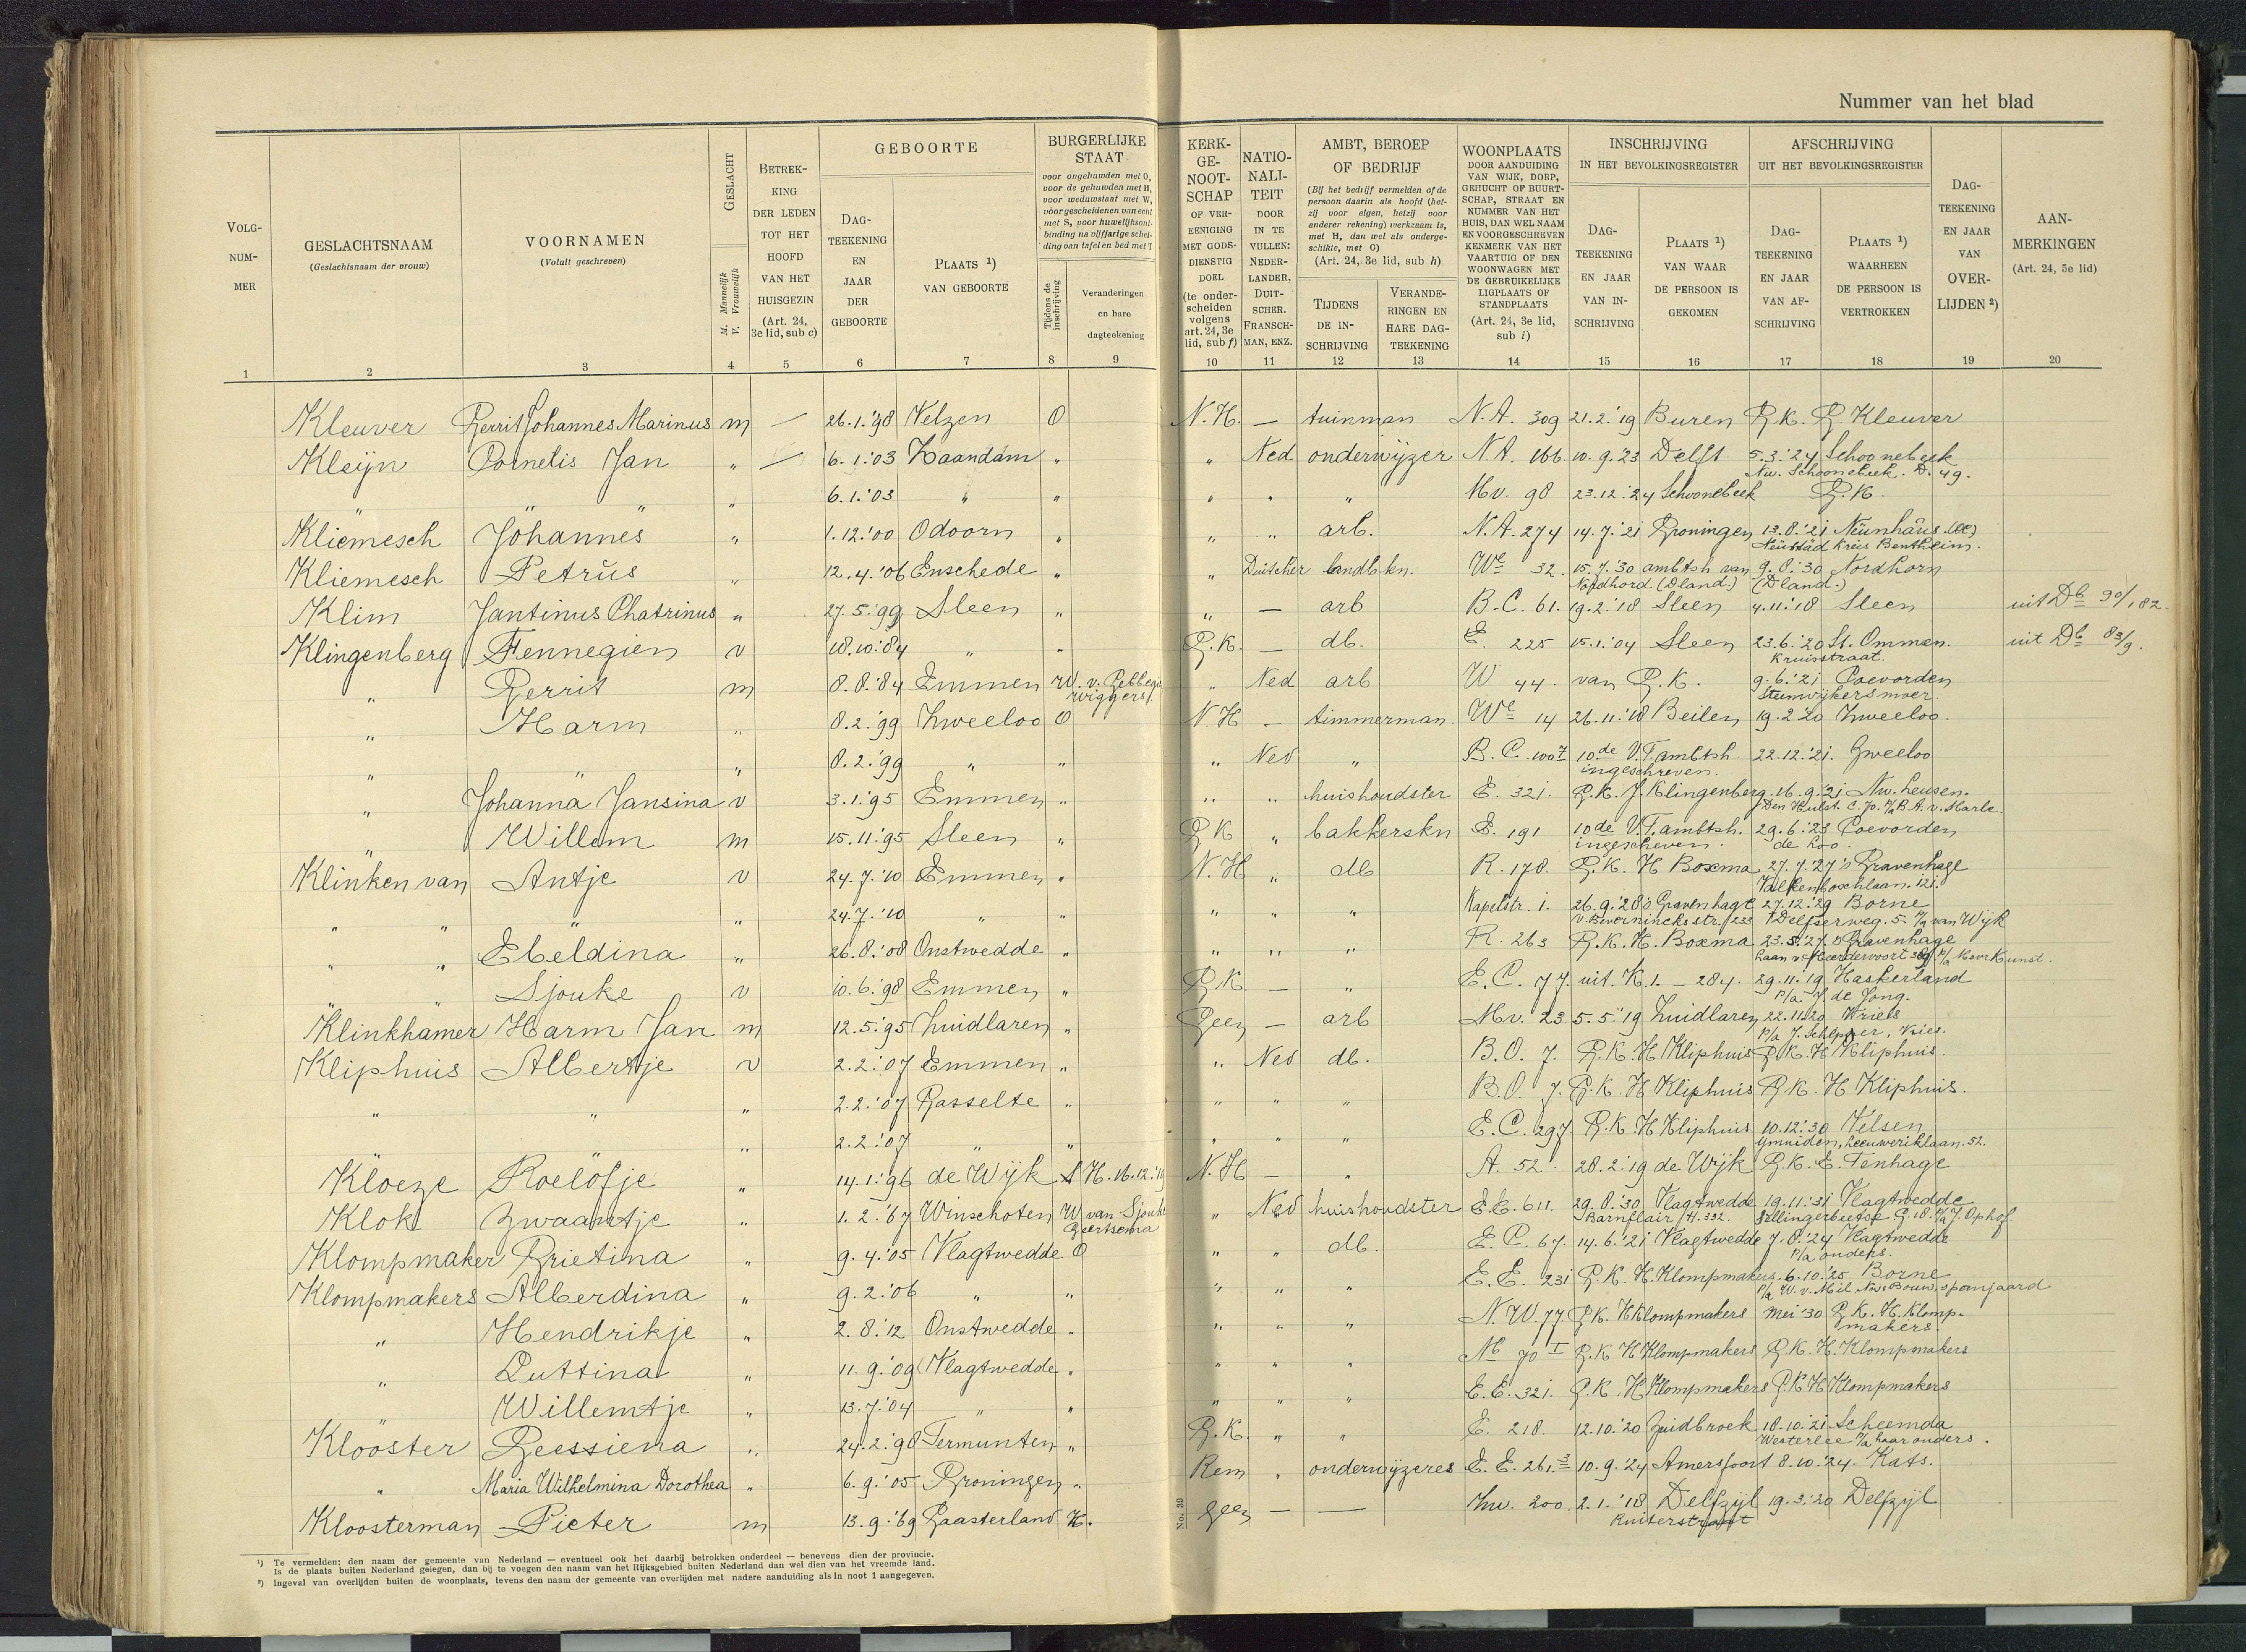 Nummer van het blad
VOLG-NUM-MER
GESLACHTSNAAM (Geslachtsnaam der vrouw)
VOORNAMEN (Voluit geschreven)
GESLACHT M. Mannelijk V. Vrouwelijk
BETREK-KING DER LEDEN TOT HET HOOFD VAN HET HUISGEZIN (Art. 24, 3e lid, sub c)
GEBOORTE
DAG-TEEKENING EN JAAR DER GEBOORTE
PLAATS ¹) VAN GEBOORTE
BURGERLIJKE STAAT
voor ongehuwden met O, voor de gehuwden met H, voor weduwstaat met W, voor gescheidenen van echt met S, voor huwelijksont-binding na vijfjarige schei-ding van tafel en bed met T
Tijdens de inschrijving
Veranderingen en hare dagteekening
KERK-GE-NOOT-SCHAP OF VER-EENIGING MET GODS-DIENSTIG DOEL (te onder-scheiden volgens art. 24, 3e lid, sub f)
NATIO-NALI-TEIT DOOR IN TE VULLEN: NEDER-LANDER, DUIT-SCHER, FRANSCH-MAN, ENZ.
AMBT, BEROEP OF BEDRIJF
(Bij het bedrijf vermelden of de persoon daarin als hoofd (het-zij voor eigen, hetzij voor anderer rekening) werkzaam is, met H, dan wel als onderge-schikte, met O) (Art. 24, 3e lid, sub h)
TIJDENS DE IN-SCHRIJVING
VERANDE-RINGEN EN HARE DAG-TEEKENING
WOONPLAATS DOOR AANDUIDING VAN WIJK, DORP, GEHUCHT OF BUURT-SCHAP, STRAAT EN NUMMER VAN HET HUIS, DAN WEL NAAM EN VOORGESCHREVEN KENMERK VAN HET VAARTUIG OF DEN WOONWAGEN MET DE GEBRUIKELIJKE LIGPLAATS OF STANDPLAATS (Art. 24, 3e lid, sub i)
INSCHRIJVING IN HET BEVOLKINGSREGISTER
DAG-TEEKENING EN JAAR VAN IN-SCHRIJVING
PLAATS ¹) VAN WAAR DE PERSOON IS GEKOMEN
AFSCHRIJVING UIT HET BEVOLKINGSREGISTER
DAG-TEEKENING EN JAAR VAN AF-SCHRIJVING
PLAATS ¹) WAARHEEN DE PERSOON IS VERTROKKEN
DAG-TEEKENING EN JAAR VAN OVER-LIJDEN ²)
AAN-MERKINGEN (Art. 24, 5e lid)
1 2 3 4 5 6 7 8 9 10 11 12 13 14 15 16 17 18 19 20
Kleuver Gerrit Johannes Marinus m — 26.1.'98 Velzen O N.H. — tuinman N.A. 309 21.2.'19 Buren G.K. G Kleuver
Kleijn Cornelis Jan „ — 6.1.'03 Zaandam „ „ Ned onderwijzer N.A. 166 10.9.'23 Delft 5.3.'24 Schoonebeek
Nw. Schoonebeek. D. 49.
„ „ „ „ 6.1.'03 „ „ „ „ „ Mv. 98 23.12.'24 Schoonebeek G.K.
Kliemesch Johannes „ 1.12.'00 Odoorn „ „ „ arb. N.A. 274 14.7.'21 Groningen 13.8.'21 Neünhaus
Neustäd Kreis Bentheim.
Kliemesch Petrus „ 12.4.'06 Enschede „ „ Duitscher landb.kn. We 32. 15.7.30 ambtsh van 9.8.'30 Nordhorn
Nordhord (Dland.) (Dland.)
Klim Jantinus Chatrinus „ 27.5.'99 Sleen „ „ — arb B.C. 61. 19.2.'18 Sleen 4.11.'18 Sleen uit Db 90/182.
Klingenberg Fennegien v 18.10.'84 „ „ G.K. — db. E. 225 15.1.'04 Sleen 23.6.'20 St. Ommen. uit Db 83/9.
Kruisstraat.
„ Gerrit m 8.8.'84 Emmen W. v. Gebbega „ Ned arb W 44. van G.K. 9.6.'21 Coevorden
Wiggers/. Steenwijkersmoer.
„ Harm „ 8.2.'99 Zweeloo O N.H — timmerman. We 14 26.11.'18 Beilen 19.2'20 Zweeloo.
„ „ „ 8.2.'99 „ „ „ Ned „ B.C. 100 10de V.T. ambtsh. 22.12.'21. Zweeloo
ingeschreven.
„ Johanna Jansina v 3.1.'95 Emmen „ „ „ huishoudster E. 321. G.K. J. Klingenberg. 16.9.'21 Nw. Leusen.
Den Hulst C. 70. p/a B.A. v. Marle.
„ Willem m 15.11.'95 Sleen „ G K „ bakkerskn E. 191 10de V.T. ambtsh. 29.6.'23 Coevorden
ingescheven. de Loo.
Klinken van Antje v 24.7.'10 Emmen „ N.H „ db R. 178. G.K. H Boxma 27.7.'27 's Gravenhage
Valkenboschlaan. 121.
„ „ „ „ 24.7.'10 „ „ „ „ „ Kapelstr. 1. 26.9.'28 's Gravenhage 27.12.'29 Borne
v. Bevernincksstr. 233 Delfserweg. 5. p/a van Wijk
„ „ Ebeldina „ 26.8.'08 Onstwedde „ „ „ „ R. 263 G.K. H. Boxma 23.5.'27. 's Gravenhage
Laan v Meerdervoort 389 p/a Mevr Kunst.
„ „ Sjouke v 10.6.'98 Emmen „ G.K. — „ E.C. 77. uit. K.1. – 284. 29.11.'19 Haskerland
p/a J. de Jong.
Klinkhamer Harm Jan m 12.5.'95 Zuidlaren „ Geen — arb Mv. 23 5.5.'19 Zuidlaren 22.11.20 Vriels
p/a J. Schepper, Vries.
Kliphuis Albertje v 2.2.'07 Emmen „ „ Ned db. B.O. 7. G.K. H Kliphuis G.K. H Kliphuis.
„ „ „ 2.2.'07 Gasselte „ „ „ „ B.O. 7. G.K. H Kliphuis G.K. H Kliphuis.
„ 2.2.'07 „ „ „ „ „ E.C. 297 G.K. H Kliphuis 10.12.'30 Velsen
Ymuiden, Leeuweriklaan. 52.
Kloeze Roelofje „ 14.1.'96 de Wijk S H. 16.12.'19 N.H — „ A. 52. 28.2.'19 de Wijk G.K. E. Tenhage
Klok Zwaantje „ 1.2.'67 Winschoten W van Sjouke „ Ned huishoudster E.E. 611. 29.8.'30 Vlagtwedde 19.11.'31 Vlagtwedde
Geertsema Barnflair H. 392. Sellingerbeetse G. 18. p/a J. Ophof.
Klompmaker Grietina „ 9.4.'05 Vlagtwedde O „ „ db. E.C. 67. 14.6.'21 Vlagtwedde 7.8.'24 Vlagtwedde
p/a ouders.
Klompmakers Alberdina „ 9.2.'06 „ „ „ „ „ E.E. 231 G.K. H. Klompmakers. 6.10.'25 Borne
p/a W. v. Mil Nw. Bouw, spanjaard
„ Hendrikje „ 2.8.'12 Onstwedde „ „ „ „ N.W. 77. G.K. H Klompmakers Mei '30 G.K. H. Klomp-
makers.
„ Luttina „ 11.9.'09 Vlagtwedde „ „ „ „ 70 I G.K. H Klompmakers G.K. H. Klompmakers
„ Willemtje „ 13.7.'04 „ „ „ „ „ E.E. 321. G.K. H Klompmakers G.K H Klompmakers
Klooster Geessiena „ 24.2.'98 Termunten „ G.K. „ „ E. 218. 12.10.'20 Zuidbroek 18.10.'21 Scheemda
Westerlee p/a haar ouders.
„ Maria Wilhelmina Dorothea „ 6.9.'05 Groningen „ Rem „ onderwijzeres E.E. 261. 10.9.'24 Amersfoort 8.10.'24. Kats.
Kloosterman Pieter m 13.9.'69 Gaasterland H. geen — — Zw. 200 2.1.'18 Delfzijl 19.3.'20 Delfzijl
Ruiterstraat
No. 39
¹) Te vermelden: den naam der gemeente van Nederland — eventueel ook het daarbij betrokken onderdeel — benevens dien der provincie.
Is de plaats buiten Nederland gelegen, dan bij te voegen den naam van het Rijksgebied buiten Nederland dan wel dien van het vreemde land.
²) Ingeval van overlijden buiten de woonplaats, tevens den naam der gemeente van overlijden met nadere aanduiding als in noot 1 aangegeven.